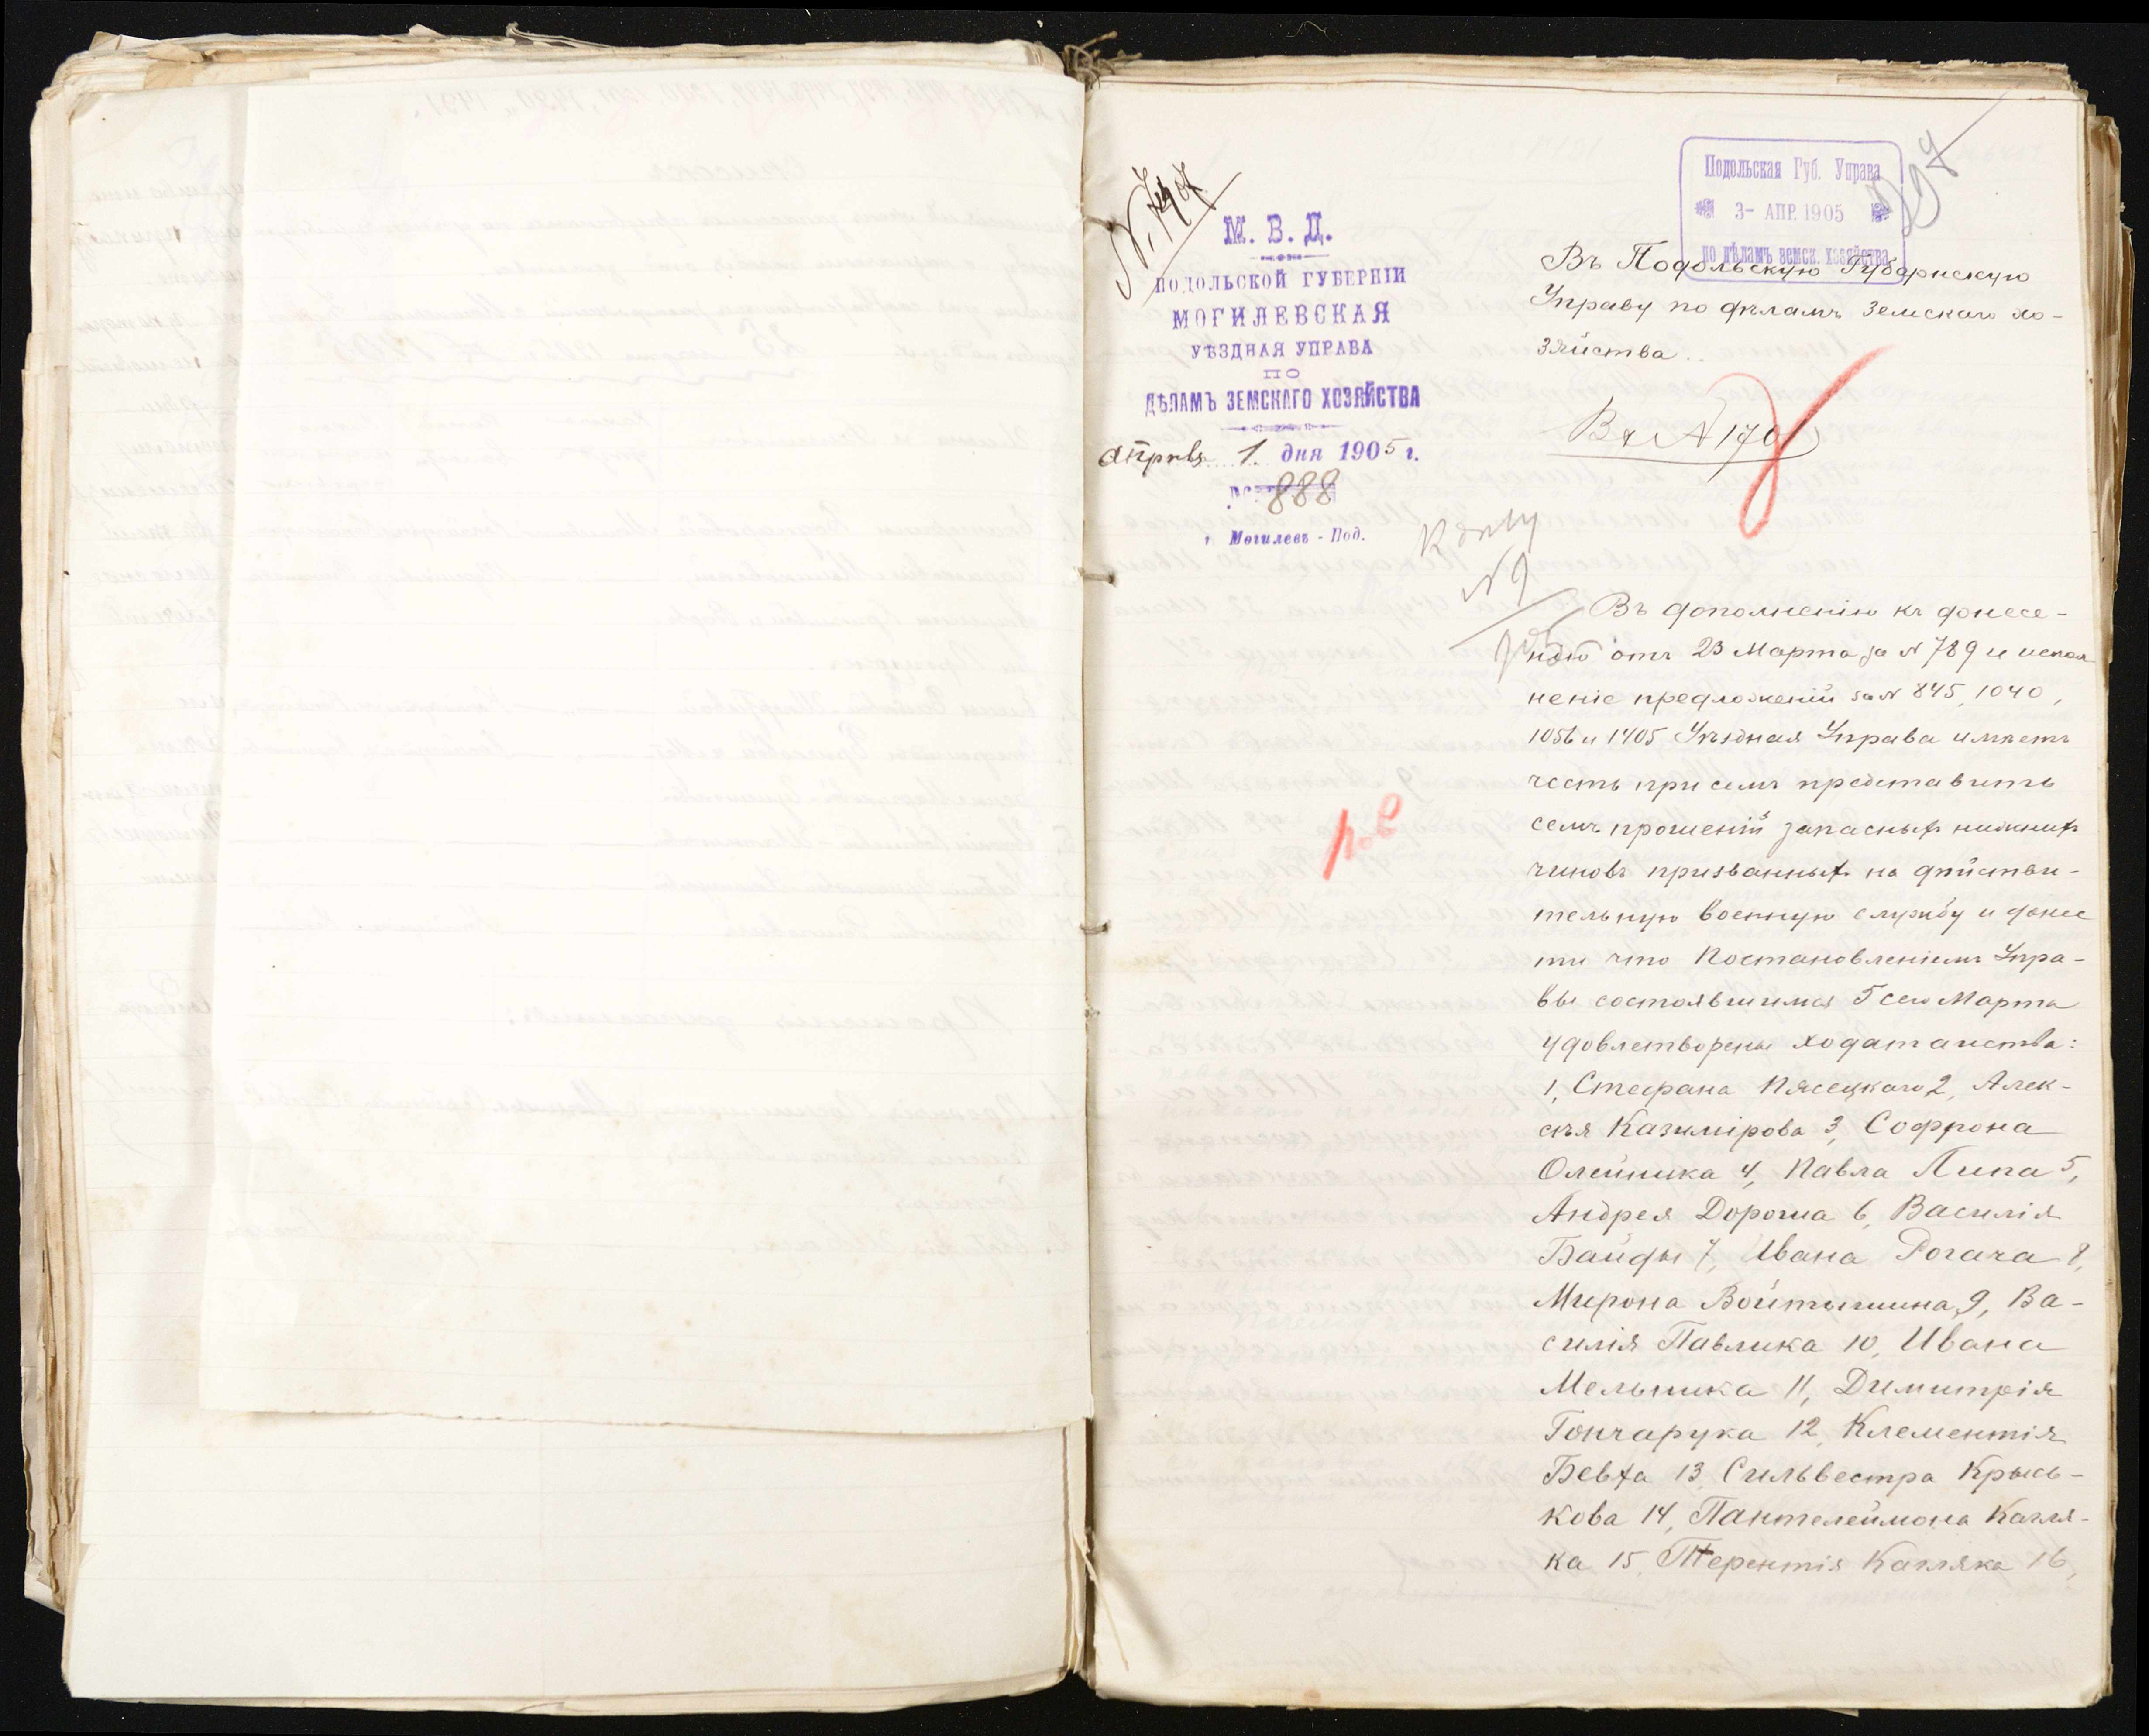 М. В. Д.
ПОДОЛЬСКОЙ ГУБЕРНІИ
МОГИЛЕВСКАЯ
УѢЗДНАЯ УПРАВА
ПО
ДѢЛАМЪ ЗЕМСКАГО ХОЗЯЙСТВА
Апрѣля 1 дня 1905 г.
888
г. Могилевъ - Под.
Подольская Губ. Управа
3- АПР. 1905
по дѣламъ земск. хозяйства
Въ Подольскую Губернскую
Управу по дѣламъ Земскаго хо-
зяйства
Въ дополненію къ донесе-
нію отъ 23 Марта за № 789 и испол
неніе предложеній за № 845, 1040,
1056 и 1405 Уѣздная Управа имѣетъ
честь при семъ представить
семь прошеній запасныхъ нижнихъ
чиновъ призванныхъ на дѣйстви-
тельную военную службу и донес
ти что Постановленіемъ Упра-
вы состоявшимся 5 сего Марта
удовлетворены ходатайства:
1, Стефана Пясецкаго 2, Алек-
сѣя Казимірова 3, Софрона
Олейника 4, Павла Липа 5,
Андрея Дороша 6, Василія
Байды 7, Ивана Рогача 8,
Мирона Войтышина 9, Ва-
силія Павлика 10, Ивана
Мельника 11, Димитрія
Гончарука 12, Клементія
Бевха 13, Сильвестра Крысь-
кова 14, Пантелеймона Кагля-
ка 15, Терентія Кагляка 16,